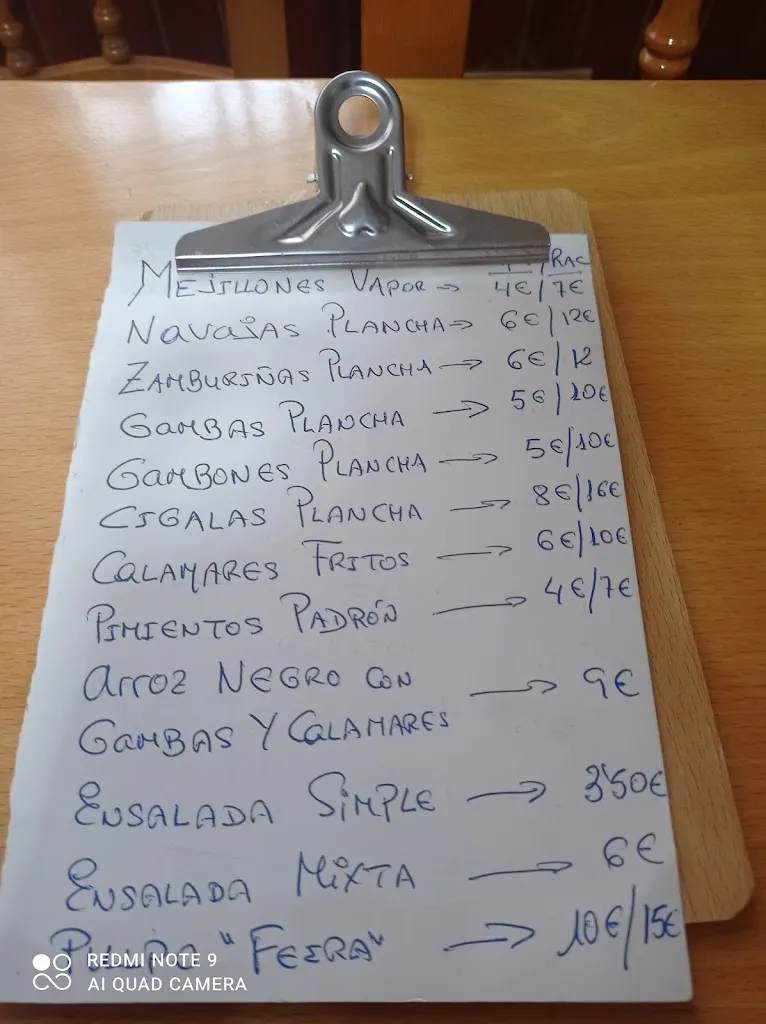 /RAC
MEJILLONES VAPOR → 4€/7€
NAVAJAS PLANCHA → 6€/12€
ZAMBURIÑAS PLANCHA → 6€/12
GAMBAS PLANCHA → 5€/10€
GAMBONES PLANCHA → 5€/10€
CIGALAS PLANCHA → 8€/16€
CALAMARES FRITOS → 6€/10€
PIMIENTOS PADRÓN → 4€/7€
ARROZ NEGRO CON → 9€
GAMBAS Y CALAMARES
ENSALADA SIMPLE → 3'50€
ENSALADA MIXTA → 6€
PULPO "FEIRA" → 10€/15€
REDMI NOTE 9
AI QUAD CAMERA